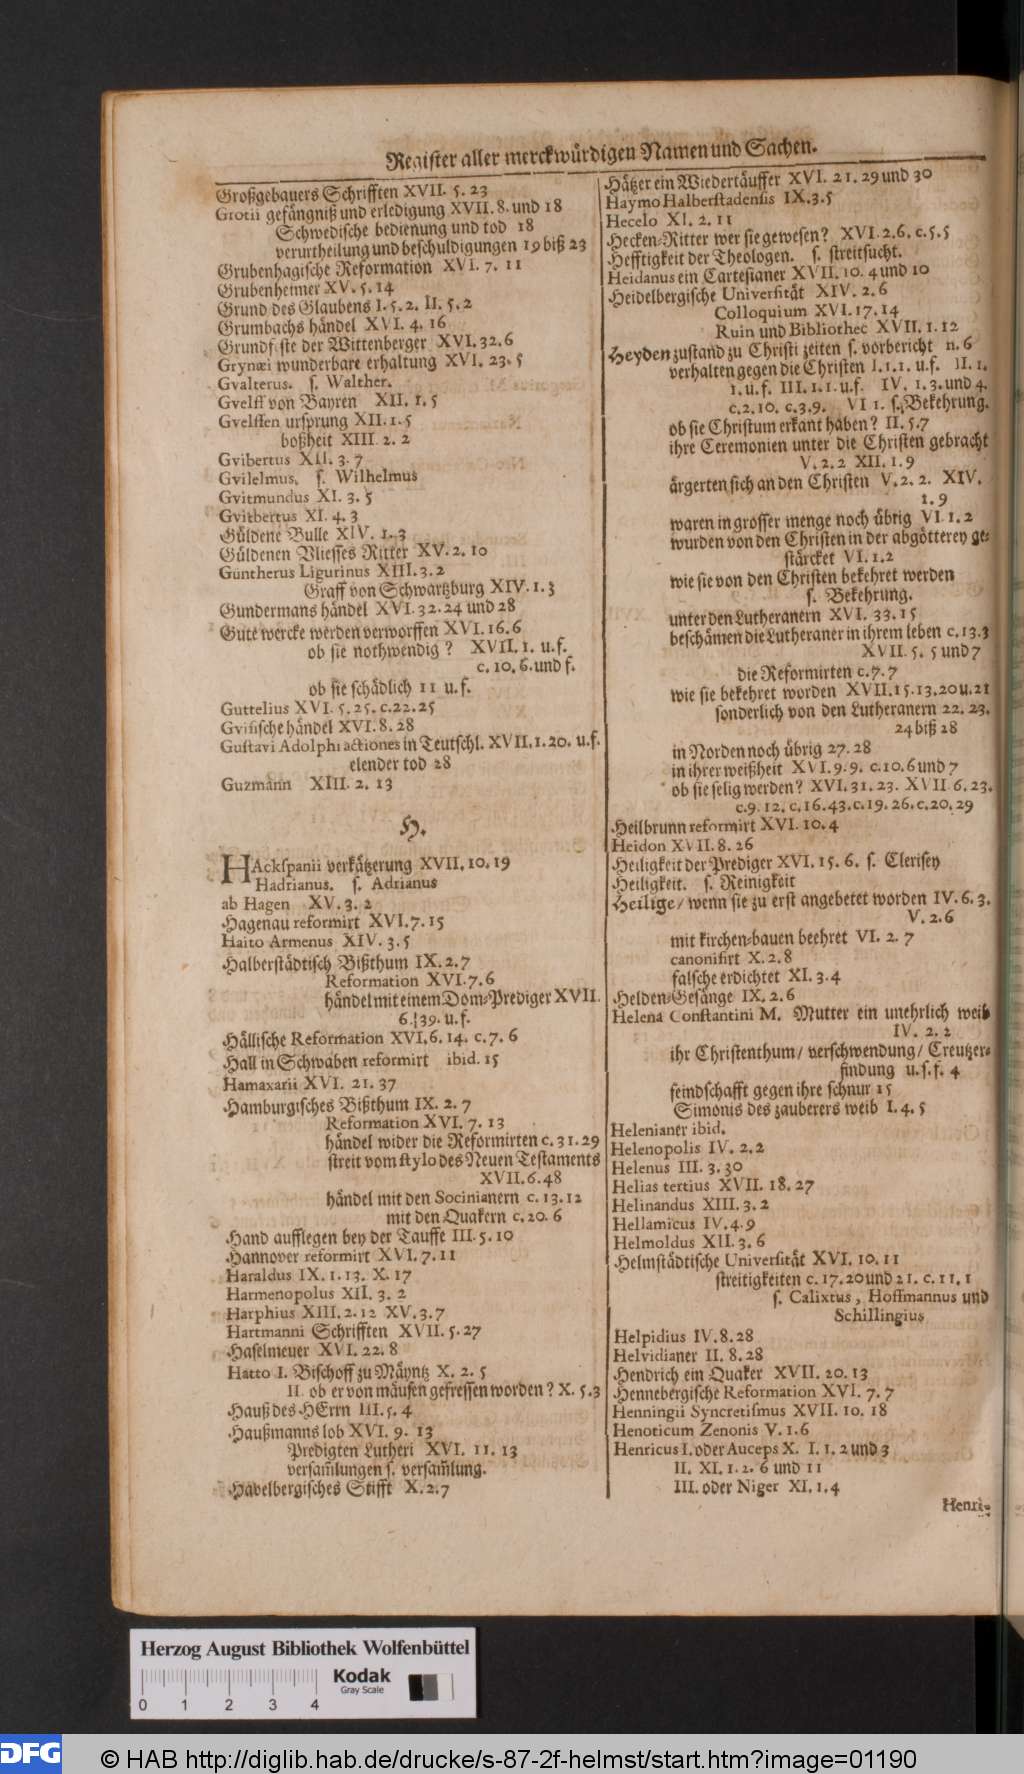 Register aller merckwürdigen Namen und Sachen.
Großgebauers Schrifften XVII. 5. 23
Grotii gefängniß und erledigung XVII. 8. und 18
Schwedische bedienung und tod 18
verurtheilung und beschuldigungen 19 biß 23
Grubenhagische Reformation XVI. 7. 11
Grubenheimer XV. 5. 14
Grund des Glaubens I. 5. 2. II. 5. 2
Grumbachs händel XVI. 4. 16
Grundfeste der Wittenberger XVI. 32. 6
Grynæi wunderbare erhaltung XVI. 23. 5
Gvalterus. s. Walther.
Gvelff von Bayren XII. 1. 5
Gvelffen ursprung XII. 1. 5
boßheit XIII. 2. 2
Gvibertus XII. 3. 7
Gvilelmus. s. Wilhelmus
Gvitmundus XI. 3. 5
Gvitbertus XI. 4. 3
Güldene Bulle XIV. 1. 3
Güldenen Vliesses Ritter XV. 2. 10
Guntherus Ligurinus XIII. 3. 2
Graff von Schwartzburg XIV. 1. 3
Gundermans händel XVI. 32. 24 und 28
Gute wercke werden verworffen XVI. 16. 6
ob sie nothwendig? XVII. 1. u. f.
c. 10. 6. und f.
ob sie schädlich 11 u. f.
Guttelius XVI. 5. 25. c. 22. 25
Gvisische händel XVI. 8. 28
Gustavi Adolphi actiones in Teutschl. XVII. 1. 20. u. f.
elender tod 28
Guzmann XIII. 2. 13
H.
HAckspanii verkätzerung XVII. 10. 19
Hadrianus. s. Adrianus
ab Hagen XV. 3. 2
Hagenau reformirt XVI. 7. 15
Haito Armenus XIV. 3. 5
Halberstädtisch Bißthum IX. 2. 7
Reformation XVI. 7. 6
händel mit einem Dom-Prediger XVII.
6. 39. u. f.
Hällische Reformation XVI. 6. 14. c. 7. 6
Hall in Schwaben reformirt ibid. 15
Hamaxarii XVI. 21. 37
Hamburgisches Bißthum IX. 2. 7
Reformation XVI. 7. 13
händel wider die Reformirten c. 31. 29
streit vom stylo des Neuen Testaments
XVII. 6. 48
händel mit den Socinianern c. 13. 12
mit den Quakern c. 20. 6
Hand aufflegen bey der Tauffe III. 5. 10
Hannover reformirt XVI. 7. 11
Haraldus IX. 1. 13. X. 17
Harmenopolus XII. 3. 2
Harphius XIII. 2. 12 XV. 3. 7
Hartmanni Schrifften XVII. 5. 27
Haselmeuer XVI. 22. 8
Hatto I. Bischoff zu Mäyntz X. 2. 5
II. ob er von mäusen gefressen worden? X. 5. 3
Hauß des HErrn III. 5. 4
Haußmanns lob XVI. 9. 13
Predigten Lutheri XVI. 11. 13
versam̃lungen s. versam̃lung.
Havelbergisches Stifft X. 2. 7
Hätzer ein Wiedertäuffer XVI. 21. 29 und 30
Haymo Halberstadensis IX. 3. 5
Hecelo XI. 2. 11
Hecken-Ritter wer sie gewesen? XVI. 2. 6. c. 5. 5
Hefftigkeit der Theologen. s. streitsucht.
Heidanus ein Cartesianer XVII. 10. 4 und 10
Heidelbergische Universität XIV. 2. 6
Colloquium XVI. 17. 14
Ruin und Bibliothec XVII. 1. 12
Heyden zustand zu Christi zeiten s. vorbericht n. 6
verhalten gegen die Christen I. 1. 1. u. f. II. 1.
1. u. f. III. 1. 1. u. f. IV. 1. 3. und 4.
c. 2. 10. c. 3. 9. VI 1. s. Bekehrung.
ob sie Christum erkant haben? II. 5. 7
ihre Ceremonien unter die Christen gebracht
V. 2. 2 XII. 1. 9
ärgerten sich an den Christen V. 2. 2. XIV.
1. 9
waren in grosser menge noch übrig VI. 1. 2
wurden von den Christen in der abgötterey ge-
stärcket VI. 1. 2
wie sie von den Christen bekehret werden
s. Bekehrung.
unter den Lutheranern XVI. 33. 15
beschämen die Lutheraner in ihrem leben c. 13. 3
XVII. 5. 5 und 7
die Reformirten c. 7. 7
wie sie bekehret worden XVII. 15. 13. 20 u. 21
sonderlich von den Lutheranern 22. 23.
24 biß 28
in Norden noch übrig 27. 28
in ihrer weißheit XVI. 9. 9. c. 10. 6 und 7
ob sie selig werden? XVI. 31. 23. XVII. 6. 23.
c. 9. 12. c. 16. 43. c. 19. 26. c. 20. 29
Heilbrunn reformirt XVI. 10. 4
Heidon XVII. 8. 26
Heiligkeit der Prediger XVI. 15. 6. s. Clerisey
Heiligkeit. s. Reinigkeit
Heilige / wenn sie zu erst angebetet worden IV. 6. 3.
V. 2. 6
mit kirchen-bauen beehret VI. 2. 7
canonisirt X. 2. 8
falsche erdichtet XI. 3. 4
Helden-Gesänge IX. 2. 6
Helena Constantini M. Mutter ein unehrlich weib
IV. 2. 2
ihr Christenthum / verschwendung / Creutzer-
findung u. s. f. 4
feindschafft gegen ihre schnur 15
Simonis des zauberers weib I. 4. 5
Helenianer ibid.
Helenopolis IV. 2. 2
Helenus III. 3. 30
Helias tertius XVII. 18. 27
Helinandus XIII. 3. 2
Hellamicus IV. 4. 9
Helmoldus XII. 3. 6
Helmstädtische Universität XVI. 10. 11
streitigkeiten c. 17. 20 und 21. c. 11. 1
s. Calixtus, Hoffmannus und
Schillingius
Helpidius IV. 8. 28
Helvidianer II. 8. 28
Hendrich ein Quaker XVII. 20. 13
Hennebergische Reformation XVI. 7. 7
Henningii Syncretismus XVII. 10. 18
Henoticum Zenonis V. 1. 6
Henricus I. oder Auceps X. I. 1. 2 und 3
II. XI. 1. 2. 6 und 11
III. oder Niger XI. 1. 4
Henri-
Herzog August Bibliothek Wolfenbüttel
0 1 2 3 4
Kodak
Gray Scale
DFG
© HAB http://diglib.hab.de/drucke/s-87-2f-helmst/start.htm?image=01190